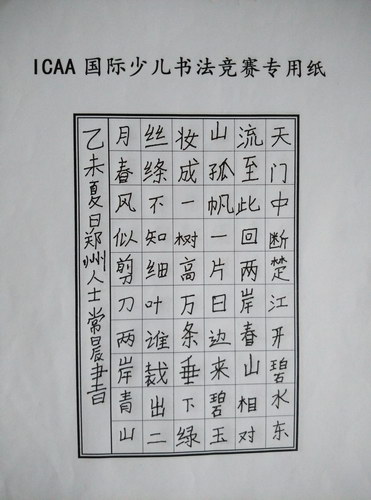 ICAA 国际少儿书法竞赛专用纸
天门中断楚江开碧水东
流至此回两岸春山相对
山孤帆一片日边来碧玉
妆成一树高万条垂下绿
丝绦不知细叶谁裁出二
月春风似剪刀两岸青山
乙未夏日郑州人士常晨書